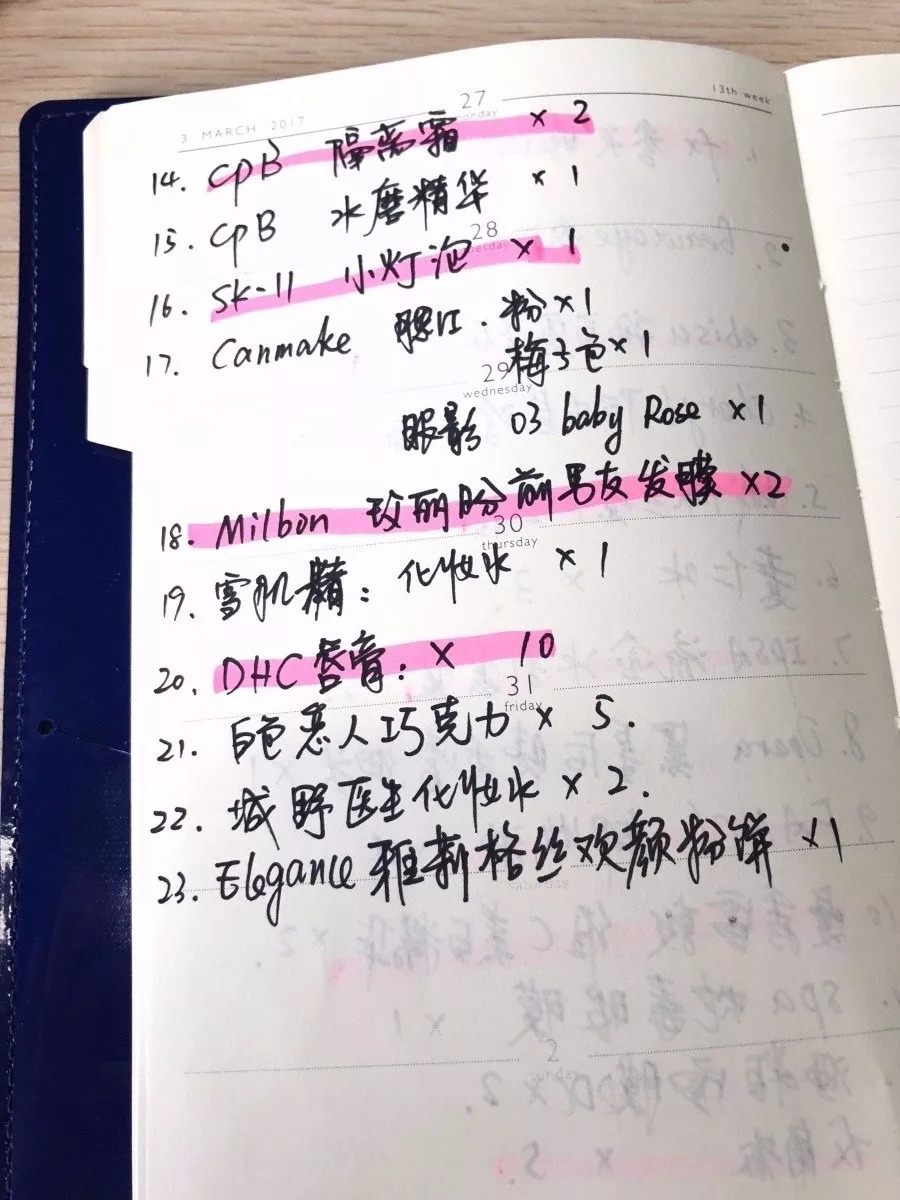 3 MARCH 2017
27
monday
13th week
14. CPB 隔离霜 × 2
15. CPB 水磨精华 × 1
28
tuesday
16. SK-11 小灯泡 × 1
17. Canmake 腮江.粉×1
梅子色×1
29
wednesday
眼影 03 baby Rose ×1
18. Milbon 玫丽盼前男友发膜 ×2
30
thursday
19. 雪肌精: 化妆水 × 1
20. DHC唇膏: × 10
31
friday
21. 白色恋人巧克力 × 5.
22. 城野医生化妆水 × 2.
23. Elegance 雅莉格丝欢颜粉饼 ×1
saturday
2
sunday